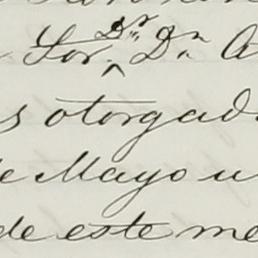 Sor. Dr. Dn. A
s otorgad
e Mayo u
de este me